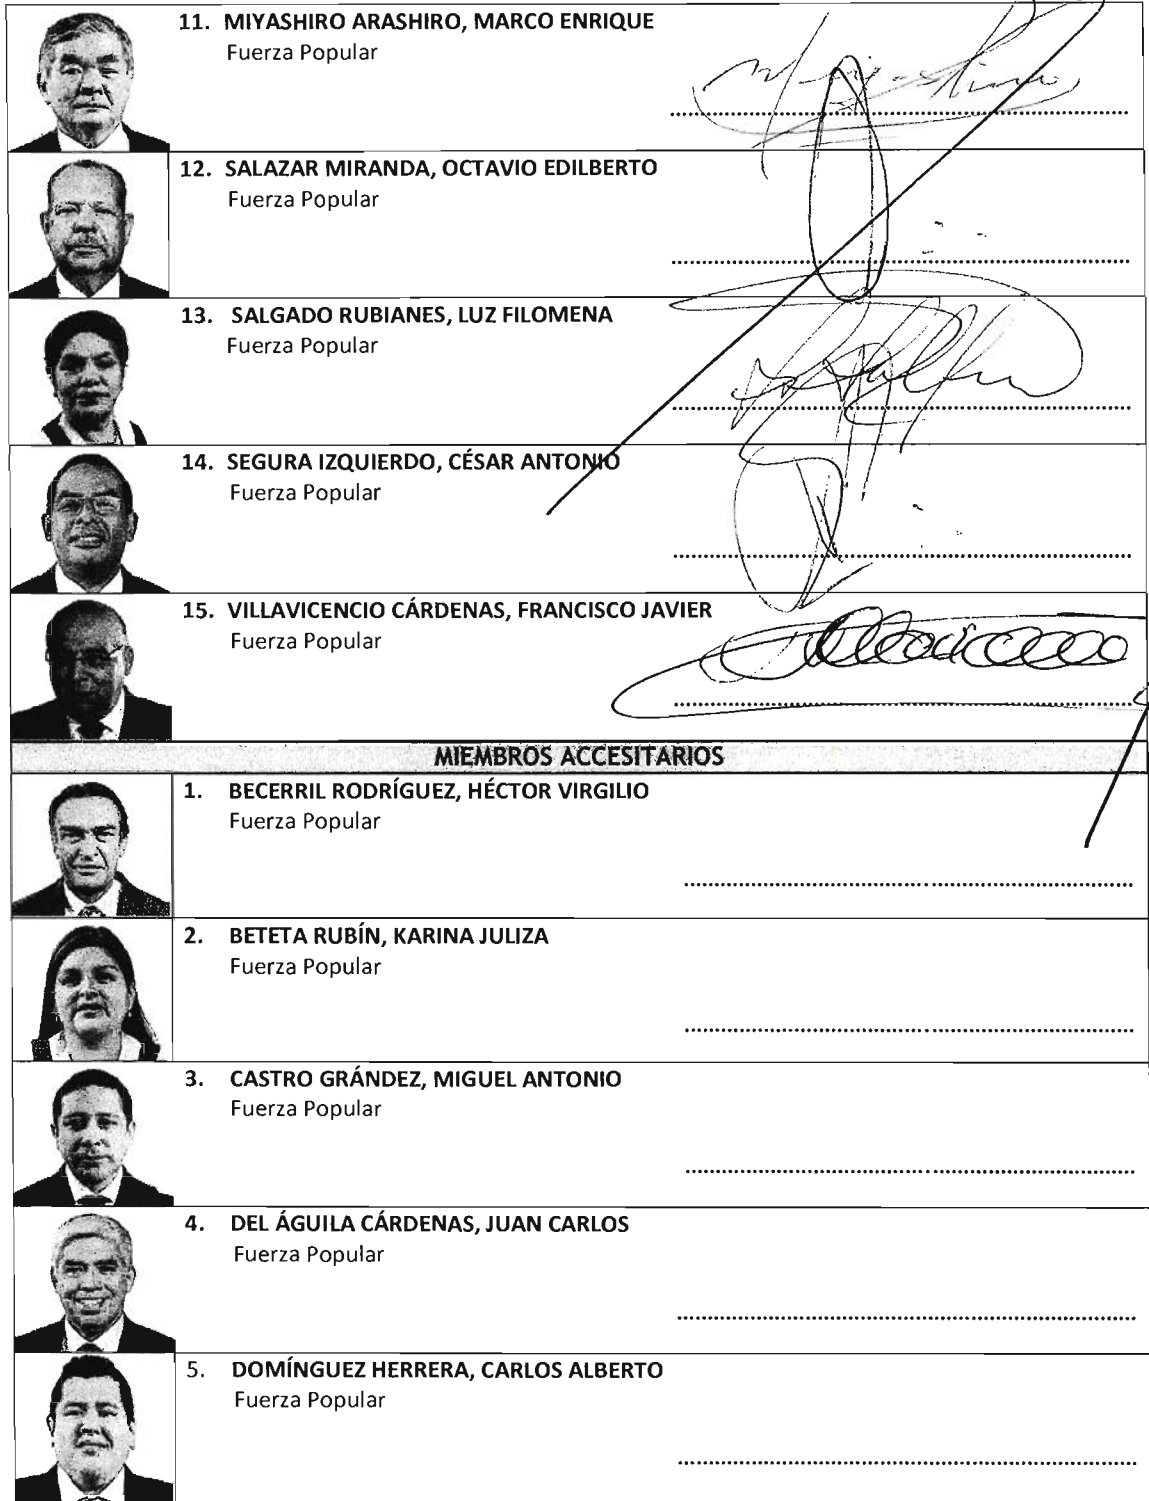 11. MIYASHIRO ARASHIRO, MARCO ENRIQUE
Fuerza Popular
12. SALAZAR MIRANDA, OCTAVIO EDILBERTO
Fuerza Popular
13. SALGADO RUBIANES, LUZ FILOMENA
Fuerza Popular
14. SEGURA IZQUIERDO, CÉSAR ANTONIO
Fuerza Popular
15. VILLAVICENCIO CÁRDENAS, FRANCISCO JAVIER
Fuerza Popular
MIEMBROS ACCESITARIOS
1. BECERRIL RODRÍGUEZ, HÉCTOR VIRGILIO
Fuerza Popular
2. BETETA RUBÍN, KARINA JULIZA
Fuerza Popular
3. CASTRO GRÁNDEZ, MIGUEL ANTONIO
Fuerza Popular
4. DEL ÁGUILA CÁRDENAS, JUAN CARLOS
Fuerza Popular
5. DOMÍNGUEZ HERRERA, CARLOS ALBERTO
Fuerza Popular